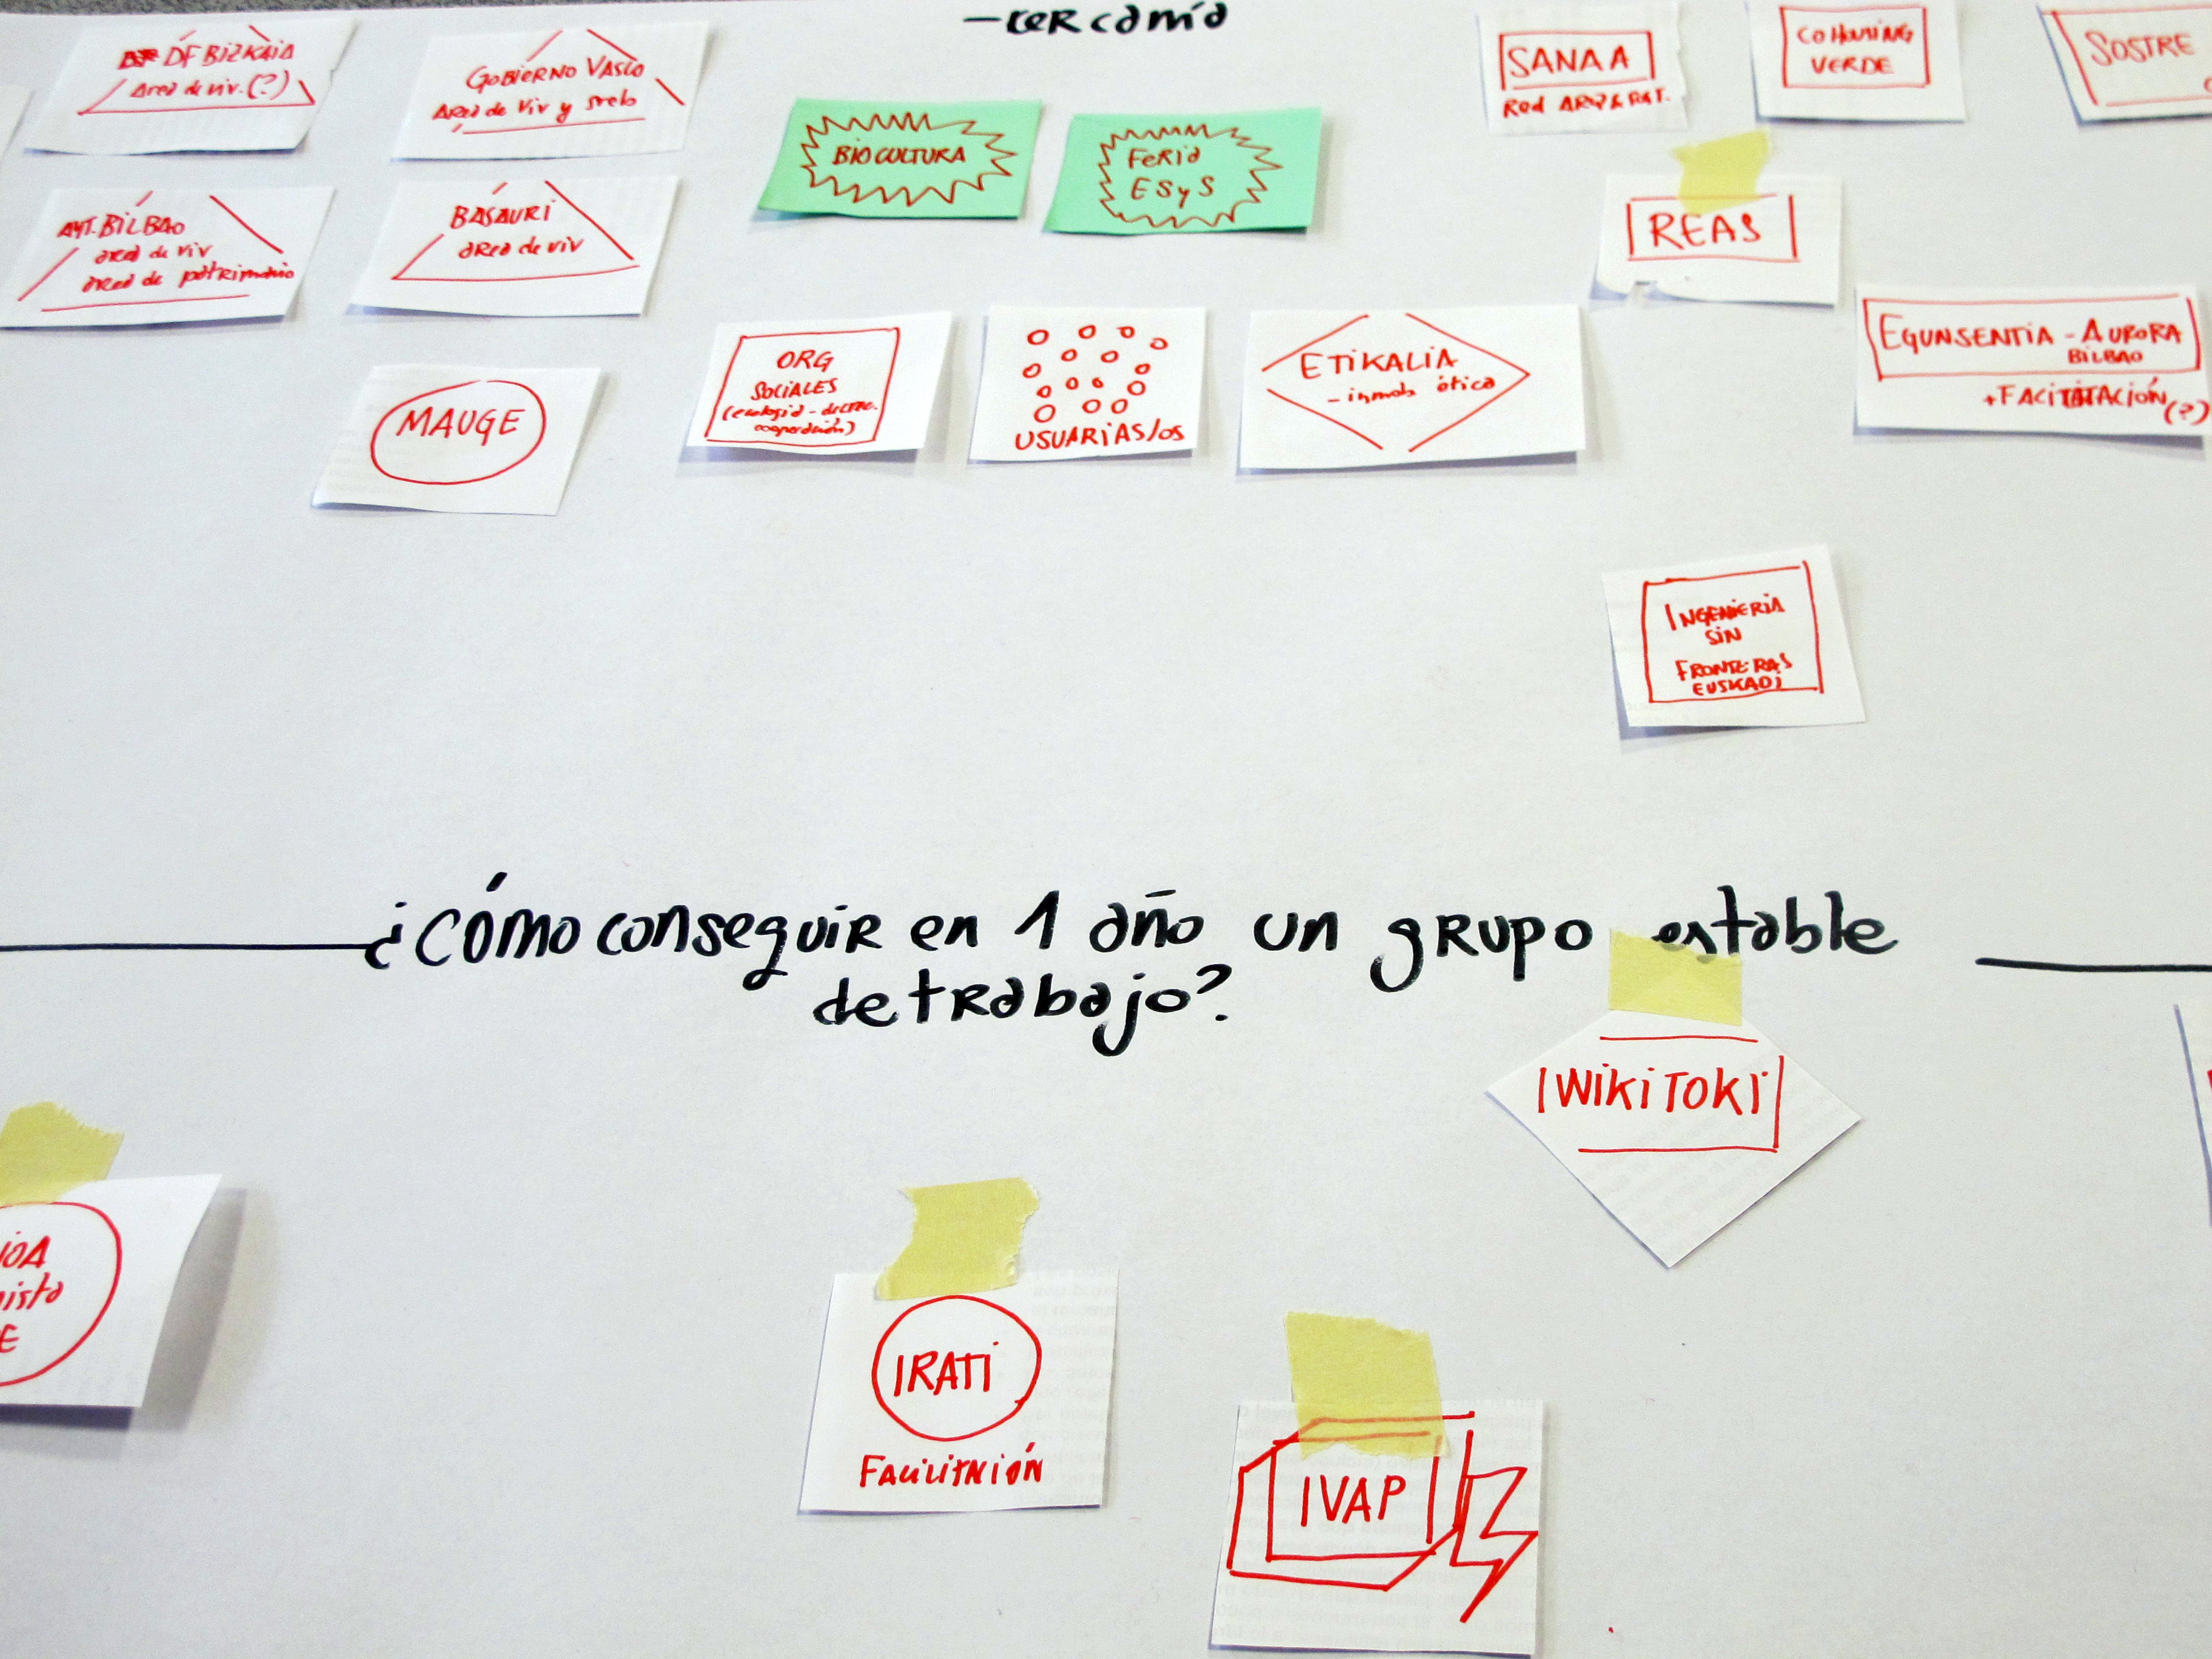 - CERCANÍA
DF BIZKAIA
área de viv. (?)
GOBIERNO VASCO
ÁREA de Viv y suelo
BIOCULTURA
FERIA
ESyS
SANAA
Red ARQ & PAT.
COHOUSING
VERDE
SOSTRE
AYT. BILBAO
área de viv
área de patrimonio
BASAURI
área de viv
REAS
MAUGE
ORG
SOCIALES
(ecología - decrec.
cooperación)
USUARIAS/OS
ETIKALIA
- inmob ética
EGUNSENTIA - AURORA
BILBAO
+ FACILITACIÓN (?)
INGENIERIA
SIN
FRONTERAS
EUSKADI
¿CÓMO conseguir en 1 año un grupo estable
de trabajo?
WIKITOKI
IRATI
FACILITACIÓN
IVAP